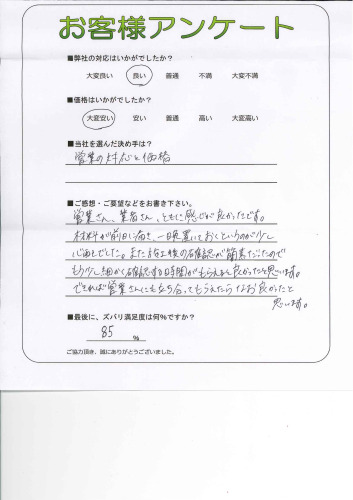 お客様アンケート
■弊社の対応はいかがでしたか?
大変良い 良い 普通 不満 大変不満
■価格はいかがでしたか?
大変安い 安い 普通 高い 大変高い
■当社を選んだ決め手は?
営業の対応と価格
■ご感想・ご要望などをお書き下さい。
営業さん、業者さん、ともに感じが良かったです。
材料が前日に届き、一日、置いておくというのが少し
心配でした。また施工後の確認が簡素だったので
もう少し細かく確認する時間がもらえると良かったと思います。
できれば営業さんにも立ち合ってもらえたらなお良かったと
思います。
■最後に、ズバリ満足度は何%ですか?
85 %
ご協力頂き、誠にありがとうございました。